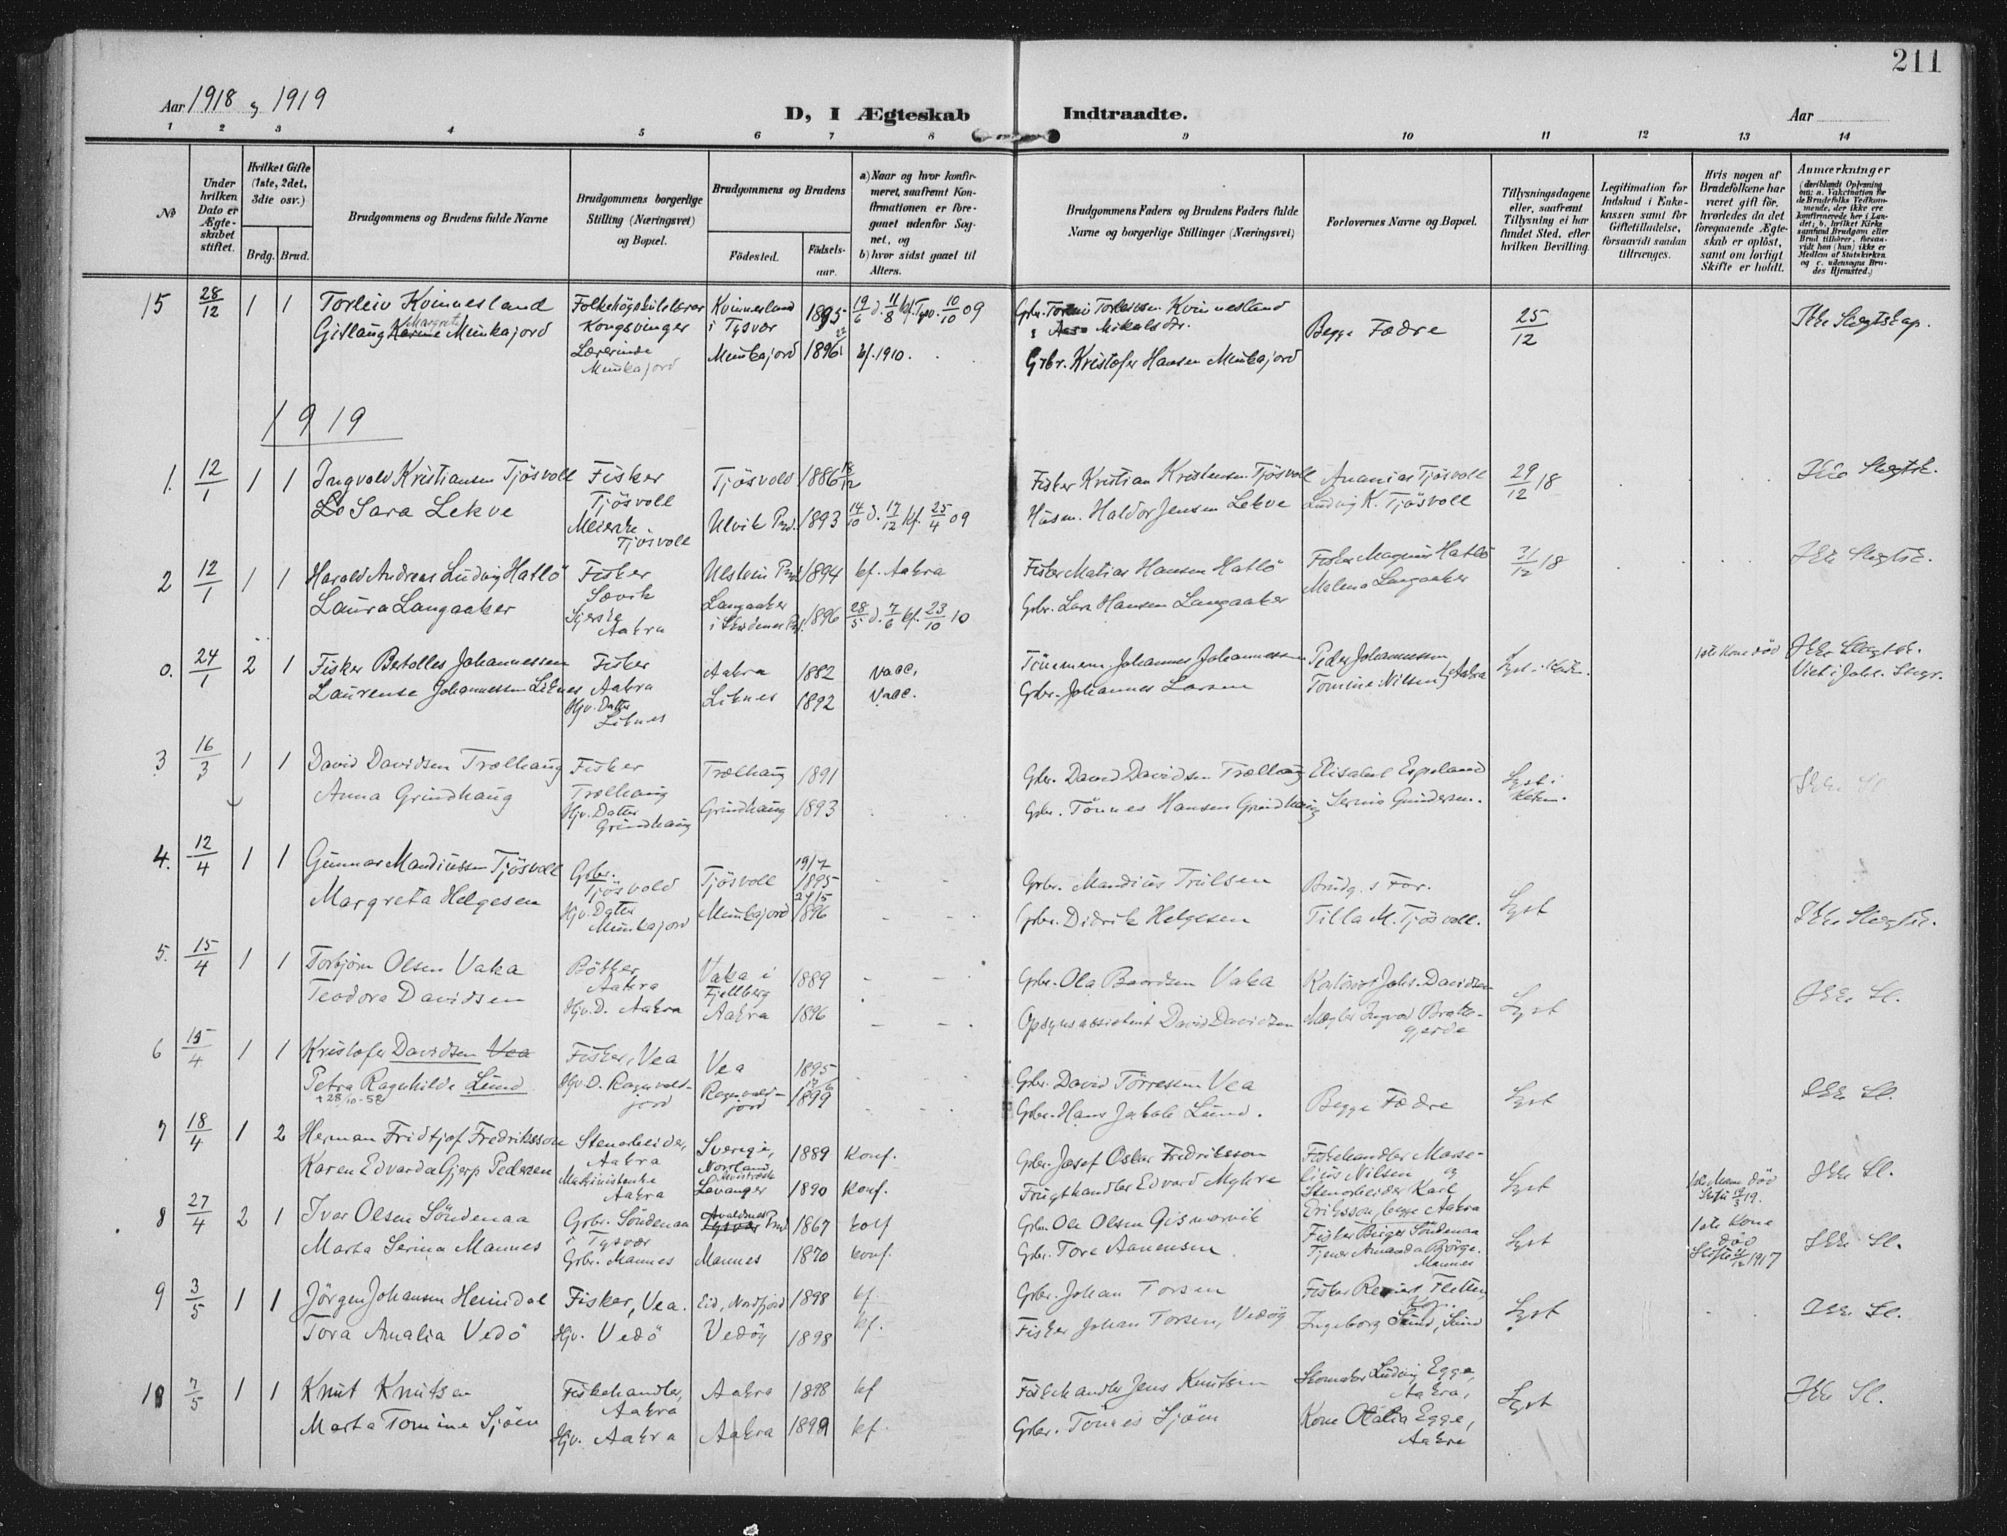 211
Aar 1918 & 1919
D, I Ægteskab Indtraadte.
Aar
1 2 3 4 5 6 7 8 9 10 11 12 13 14
№
Under hvilken Dato er Ægteskabet stiftet.
Hvilket Gifte (1ste, 2det, 3dte osv.)
Brdg. Brud.
Brudgommens og Brudens fulde Navne
Brudgommens borgerlige Stilling (Næringsvei) og Bopæl.
Brudgommens og Brudens
Fødested. Fødselsaar.
a) Naar og hvor konfirmeret, saafremt Konfirmationen er foregaaet udenfor Sognet, og
b) hvor sidst gaaet til Alters.
Brudgommens Faders og Brudens Faders fulde Navne og borgerlige Stillinger (Næringsvei)
Forlovernes Navne og Bopæl.
Tillysningsdagene eller, saafremt Tillysning ei har fundet Sted, efter hvilken Bevilling.
Legitimation for Indskud i Enkekassen samt for Giftetilladelse, forsaavidt saadan tiltrænges.
Hvis nogen af Brudefolkene har været gift før, hvorledes da det foregaaende Ægteskab er opløst, samt om lovligt Skifte er holdt.
Anmerkninger
15 28/12 1 1 Torleiv Kvinnesland Folkehögskulelærar Kvinnesland 1895 19/6 d. 11/8 kf. Tysv. 10/10 09
Gislaug Karine Margreta Munkajord Kongsvinger i Tysvær
Lærerinde Munkajord 1896 kf. 1910.
Munkajord
Kvinnesland
Mikalsdr. Begge Fædre 25/12 Ikke Slegtskap.
Grbr. Kristofer Hansen Munkajord
1919
1. 12/1 1 1 Ingvald Kristiansen Tjösvoll Fisker Tjösvold 1886 18/12
Tjösvoll
Sara Lekve Meierske Ulvik Prd. 1893 14/10 d. 17/12 kf. 25/4 09
Tjösvoll
Fisker Kristian Kristensen Tjösvoll Ananias Tjösvoll 29/12 18 Ikke Slegtsk.
Husm. Haldor Jensen Lekve Ludvig K. Tjösvoll
2 12/1 1 1 Harald Andreas Ludvig Hatlö Fisker Ulstein Prd. 1894 kf. Aakra
Sævik
Laura Langaaker Langaaker 1896 28/5 d. 7/6 kf. 23/10 10
Aakra i Skudenes Prd.
Fisker Matias Hansen Hatlö Fisker Magnus Hatlö 31/12 18 Ikke Slegtsk.
Grbr. Lars Hansen Langaaker Malena Langaaker
0. 24/1 2 1 Fisker Betolles Johannessen Fisker Aakra 1882 vacc.
Laurense Johannessen Liknes Aakra Liknes 1892 vacc.
Hjv. Datter
Liknes
Tönnem. Johannes Johannessen Peder Johannessen 1ste Kone död Ikke Slegtsk.
Grbr. Johannes Larsen Tomine Nilsen } Aakra
3 16/3 1 1 David Davidsen Trælhaug Fisker Trælhaug 1891
Trælhaug
Anna Grindhaug Hjv. Datter Grindhaug 1893
Grindhaug
Grbr. David Davidsen Trælhaug Elisabet Espeland Lyst i Kirken. Ikke Sl
Grbr. Tönnes Hansen Grindhaug Serine Gundersen.
4. 12/4 1 1 Gunnar Mandiussen Tjösvoll Grbr. Tjösvoll 19/7 1895
Tjösvold
Margreta Helgesen Hjv. Datter Munkajord 27/5 1896
Munkajord
Grbr. Mandius Trulsen Brudg.s For. Lyst Ikke Slegtsk.
Grbr. Didrik Helgesen Tilla M. Tjösvoll.
5. 15/4 1 1 Torbjörn Olsen Vaka Bötker Vaka i Fjellberg 1889
Aakra
Teodora Davidsen Hjv. D. Aakra Aakra 1896
Grbr. Ola Baardsen Vaka Johs. Davidsen Lyst Ikke Sl.
Opsynsassistent David Davidsen Mægler Ingvald Brattegjerde
6 15/4 1 1 Kristofer Davidsen Vea Fisker, Vea Vea 1895
Petra Ragnhilde Lund Hjv. D. Ragnvaldjord Ragnvaldjord 17/6 1899
+ 28/10-58
Grbr. David Törressen Vea Begge Fædre Lyst Ikke Sl.
Grbr. Hans Jakob Lund.
7 18/4 1 2 Herman Fridtjof Fredriksson Stenarbeider, Aakra Sverige, Norrland 1889 konf.
Karen Edvarda Gjerp Pedersen Maskinistenke Aakra Levanger 1890 konf.
Grbr. Josef Oskar Fredriksson Fiskehandler Masselius Nilsen og Lyst 1ste Mann död Ikke Sl.
Frugthandler Edvard Myhre Stenarbeider Karl Eriksson, begge Aakra
8 27/4 2 1 Ivar Olsen Söndenaa Grbr. Söndenaa i Tysvær Avaldsnes Tysvær Prd 1867 konf
Marta Serina Mannes Grbr. Mannes Mannes 1870 konf.
Grbr. Ole Olsen Gismarvik Fisker Birger Söndenaa Lyst 1ste Kone död Ikke Sl.
Grbr. Tore Aanensen Tjener Amanda Björge. Mannes Skifte 4/12 1917
9 3/5 1 1 Jörgen Johansen Heimdal Fisker, Vea. Eid, Nordfjord 1898 kf.
Tora Amalia Vedö Hjv. Vedö Vedöy 1898 kf.
Grbr. Johan Torsen Fisker Lyst Ikke Sl.
Fisker Johan Torsen, Vedöy Ingeborg Sund, Sund
10 7/5 1 1 Knut Knutsen Fiskehandler, Aakra Aakra 1898 kf
Marta Tomine Sjöen Hjv. Aakra Aakra 1899 kf.
Fiskehandler Jens Knutsen Skomaker Ludvig Egge, Aakra, Lyst Ikke Sl.
Grbr. Tönnes Sjöen Kone Otalia Egge, Aakra